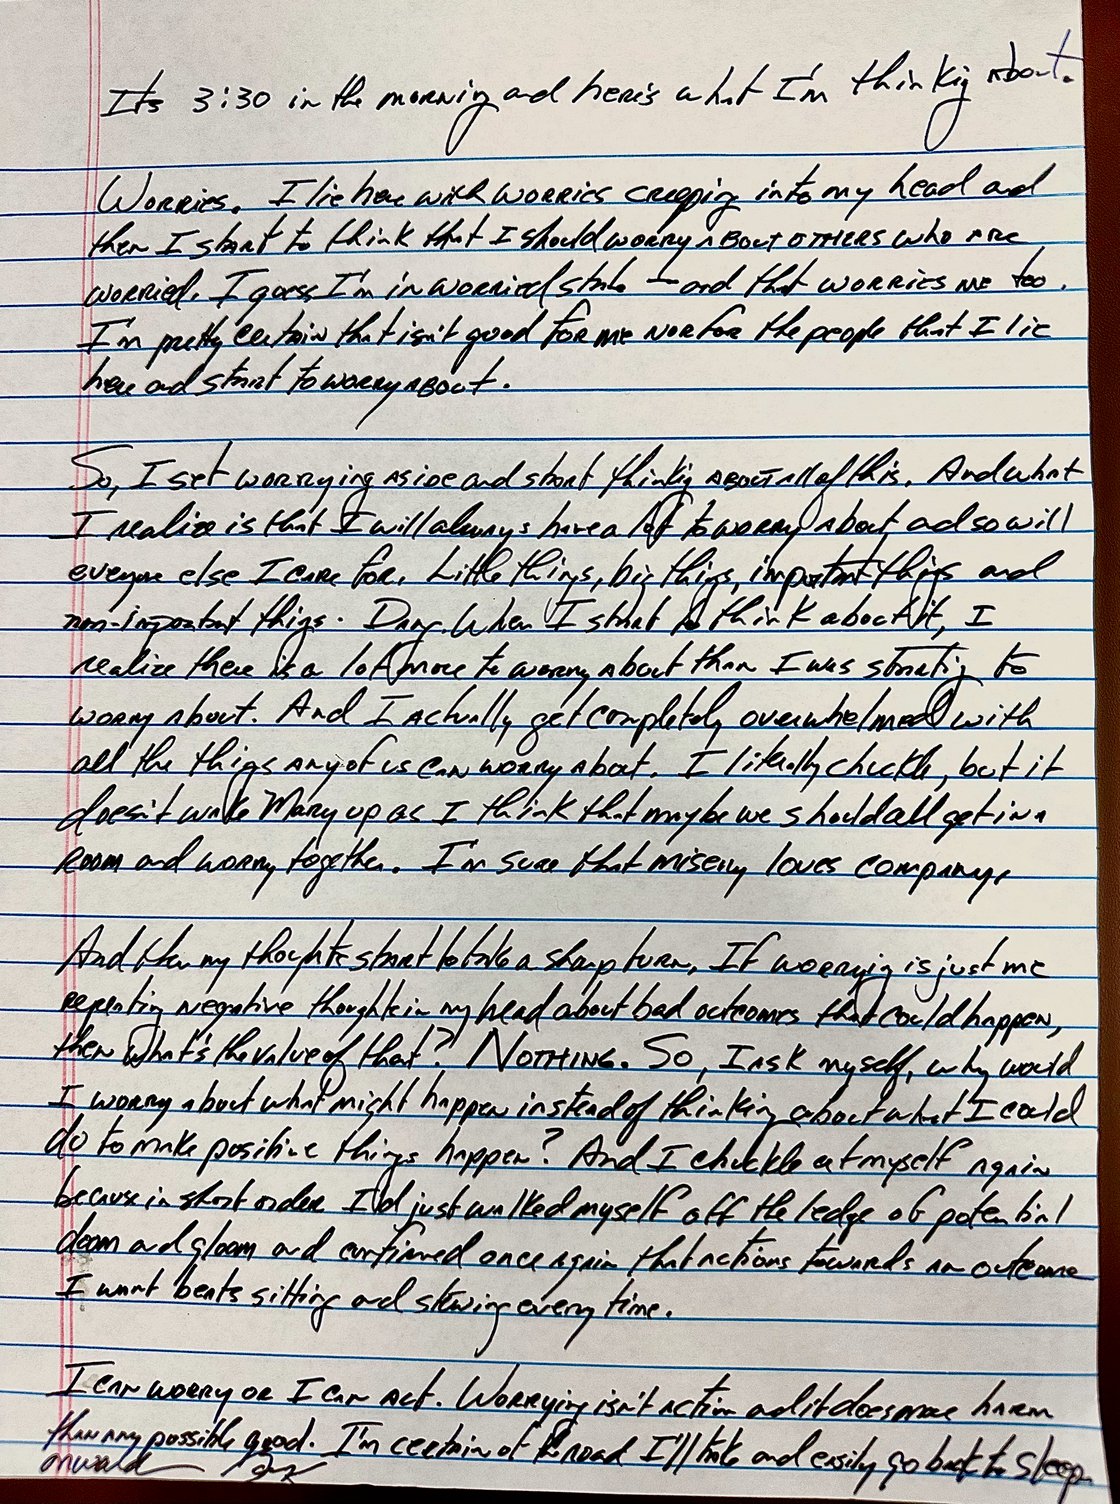 Its 3:30 in the morning and here's what I'm thinking about.
Worries. I lie here with worries creeping into my head and
then I start to think that I should worry about others who are
worried. I guess I'm in worried state - and that worries me too.
I'm pretty certain that isn't good for me nor for the people that I lie
here and start to worry about.
So, I set worrying aside and start thinking about all of this. And what
I realize is that I will always have a lot to worry about and so will
everyone else I care for. Little things, big things, important things and
non-important things. Dang. When I start to think about it, I
realize there is a lot more to worry about than I was starting to
worry about. And I actually get completely overwhelmed with
all the things any of us can worry about. I literally chuckle, but it
doesn't wake Mary up as I think that maybe we should all get in a
room and worry together. I'm sure that misery loves company.
And then my thoughts start to take a sharp turn. If worrying is just me
repeating negative thoughts in my head about bad outcomes that could happen,
then what's the value of that? NOTHING. So, I ask myself, why would
I worry about what might happen instead of thinking about what I could
do to make positive things happen? And I chuckle at myself again
because in short order I'd just walked myself off the ledge of potential
doom and gloom and confirmed once again that actions towards an outcome
I want beats sitting and stewing every time.
I can worry or I can act. Worrying isn't action and it does more harm
than any possible good. I'm certain of the road I'll take and easily go back to sleep.
onward